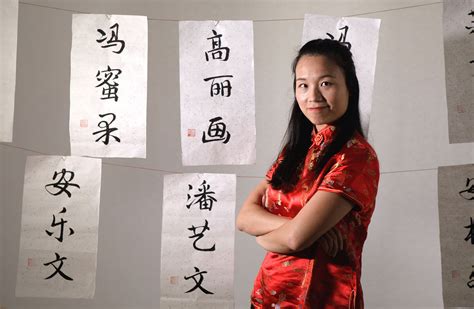 冯蜜柔
高丽画
冯
安乐文
潘艺文